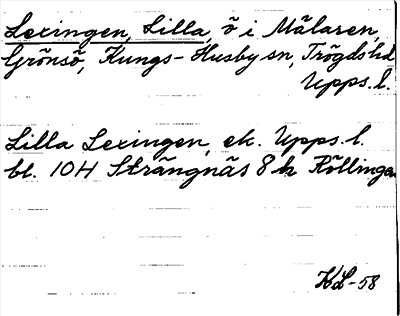 Lexingen, Lilla, ö i Mälaren,
Grönsö, Kungs-Husby sn, Trögds hd
Upps. l.
Lilla Lexingen, ek. Upps. l.
bl. 104 Strängnäs 8 h Köllinga
KL-58